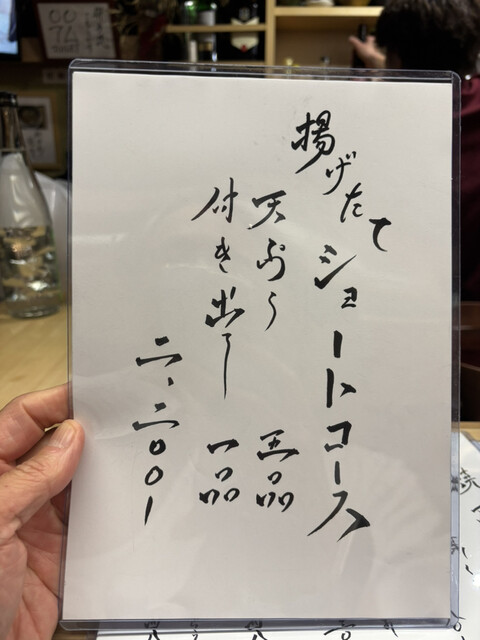 揚げたて
ショートコース
天ぷら 五品
付き出し 一品
二、二〇〇ー